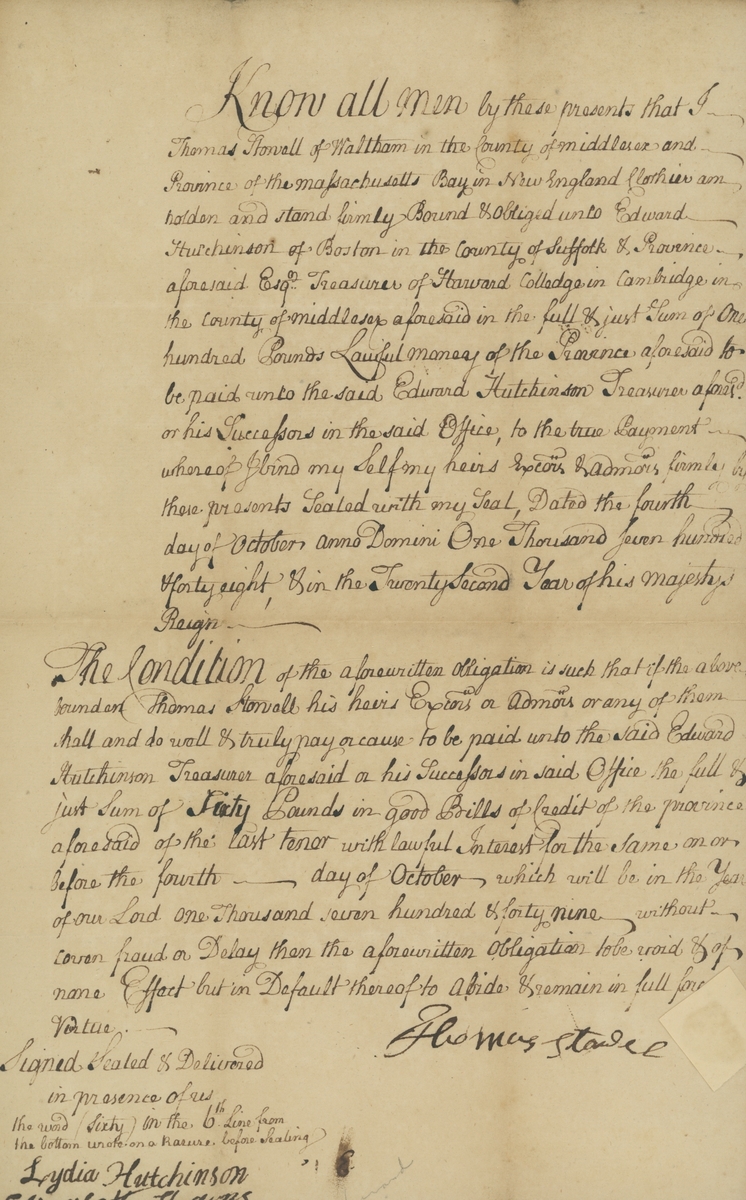 Know all men by these presents that I
Thomas Stowell of Waltham in the County of middlesex and
Province of the massachusetts Bay in New England Clothier am
holden and stand firmly Bound & Obliged unto Edward
Hutchinson of Boston in the County of Suffolk & Province
aforesaid Esqr. Treasurer of Harvard Colledge in Cambridge in
the County of middlesex aforesaid in the full & just Sum of One
hundred Pounds Lawful money of the Province aforesaid to
be paid unto the said Edward Hutchinson Treasurer aforesd.
or his Successors in the said Office, to the true Payment
whereof I bind my Self my heirs Excors & admors firmly by
these presents Sealed with my Seal, Dated the fourth
day of October anno Domini One Thousand Seven hundred
& forty eight, & in the Twenty Second Year of his majestys
Reign
The Condition of the aforewritten obligation is such that if the above
bounden Thomas Stowell his heirs Excors or admors or any of them
shall and do well & truly pay or cause to be paid unto the said Edward
Hutchinson Treasurer aforesaid or his Successors in said Office the full &
just Sum of Sixty Pounds in good Bills of Credit of the province
aforesaid of the last tenor with lawful Interest for the Same on or
before the fourth day of October which will be in the Year
of our Lord One Thousand seven hundred & forty nine without
coven fraud or Delay then the aforewritten Obligation to be void & of
none Effect but in Default thereof to abide & remain in full
Virtue.
Thomas Stowel
Signed Sealed & Delivered
in presence of us
the word (Sixty) in the 6th Line from
the bottom wrote on a rasure before Sealing
Lydia Hutchinson